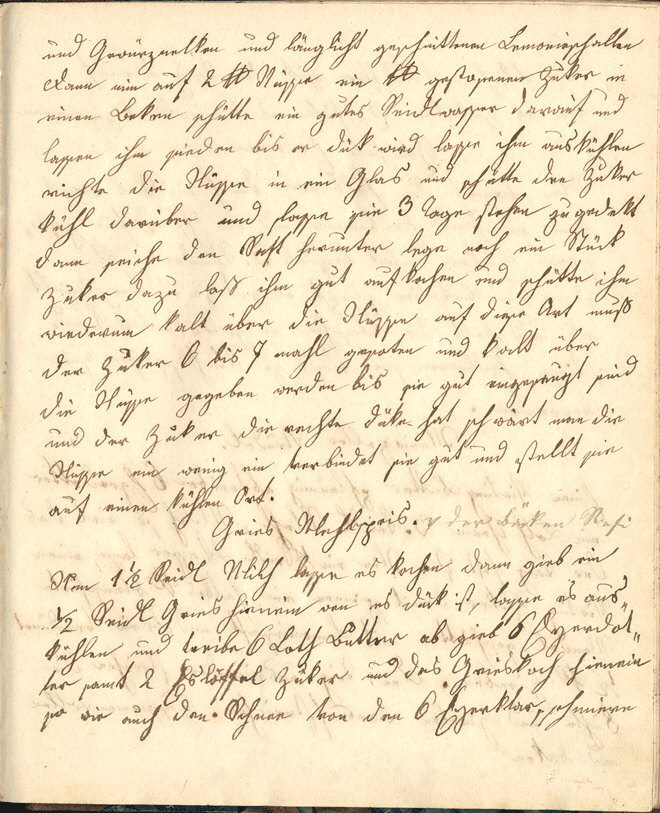 und Gewürznelken und länglicht geschnittenen Lemonieschallen
dann nim auf 2 ℔ Nüsse ein ℔ gestossenen Zuker in
einen Beken schütte ein gutes Seidl wasser darauf und
lassen ihm sieden bis er dük wird lasse ihm auskühlen
richte die Nüsse in ein Glas und schütte den Zuker
kühl darüber und lasse sie 3 Tage stehen zugedekt
dann seiche den Saft herunter lege noch ein Stük
Zuker dazu lass ihm gut aufkochen und schütte ihm
wiederum kalt über die Nüsse auf diese Art muß
der Zuker 6 bis 7 mahl gesoten und kalt über
die Nüsse gegeben werden bis sie gut eingesaugt sind
und der Zuker die rechte düke hat schwärt man die
Nüsse ein wenig ein verbindet sie gut und stellt sie
auf einen kühlen Ort.
Gries Mehlspeis. der
Nem 1 1/2 Seidl Milch lasse es kochen dann gieb ein
1/2 Seidl Gries hienein wen es dück ist, lasse es aus„
kühlen und treibe 6 Loth Butter ab gieb 6 Eyerdot„
ter samt 2 Eslöffel Zuker und das Grieskoch hienein
so wie auch den Schnee von den 6 Eyerklar, schmiere